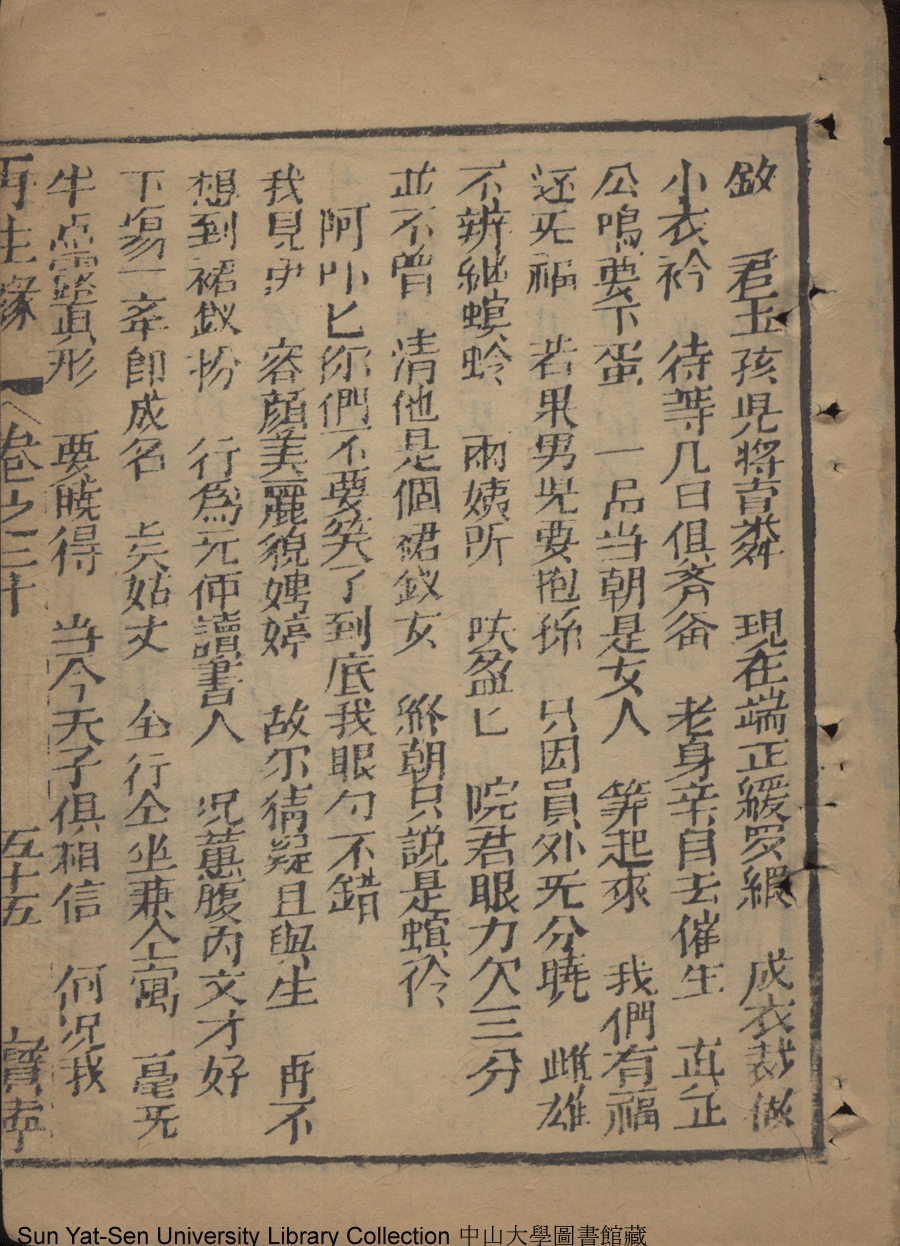 敛　君玉孩児将賣粦　現在端正緩罗縀　成衣裁做
小衣衿　待等几日俱斉备　老身亲自去催生　真正
公鳴要下蛋　一品当朝是女人　筭起來　我們有福
还旡福　若果男児要抱孫　只因員外旡分曉　雌雄
不辨継螟蛉　兩姨所　　盈匕　院君眼力欠三分
並不曾　清他是個裙釵女　終朝只説是螟伶
阿吖匕你們不要笑了到底我眼勺不錯
我見尹　容顔美麗貌娉婷　故尔猜疑且與生　再不
想到裙釵扮　行為元仲讀書人　况蕙腹内文才好
下傷一牽即成名　矣姑丈　仝行仝坐兼仝寓　毫旡
半点露真形　要曉得　当今天子俱相信　何况我
再生縁　卷之三十　五十五　寳華
Sun Yat-Sen University Library Collection 中山大學圖書館藏